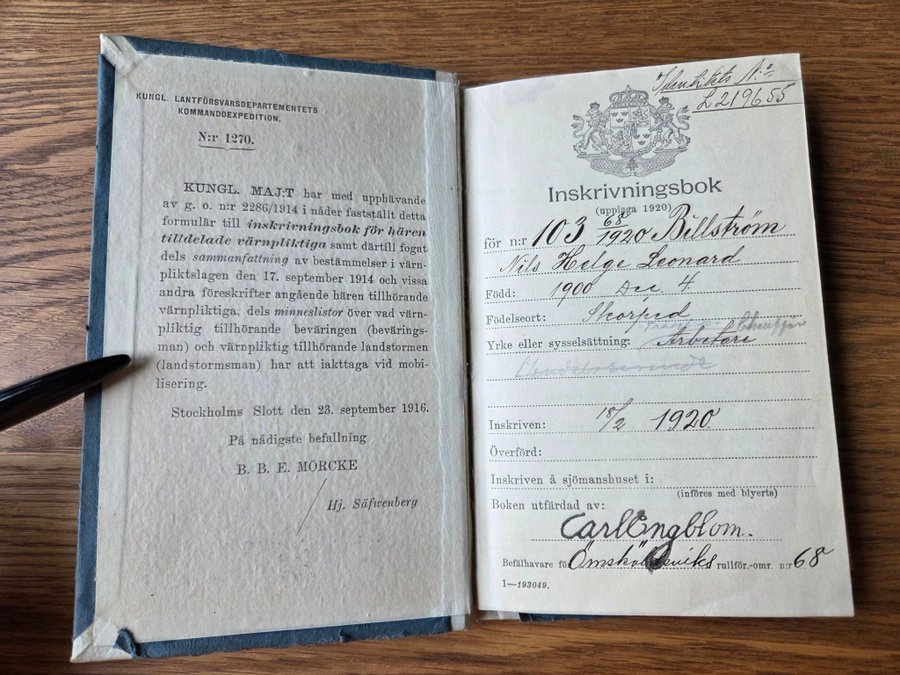 KUNGL. LANTFÖRSVARSDEPARTEMENTETS
KOMMANDOEXPEDITION.
N:r 1270.
KUNGL. MAJ:T har med upphävande
av g. o. n:r 2286/1914 i nåder fastställt detta
formulär till inskrivningsbok för hären
tilldelade värnpliktiga samt därtill fogat
dels sammanfattning av bestämmelser i värn-
pliktslagen den 17. september 1914 och vissa
andra föreskrifter angående hären tillhörande
värnpliktiga, dels minneslistor över vad värn-
pliktig tillhörande beväringen (bevärings-
man) och värnpliktig tillhörande landstormen
(landstormsman) har att iakttaga vid mobi-
lisering.
Stockholms Slott den 23. september 1916.
På nådigste befallning
B. B. E. MÖRCKE
Hj. Säfwenberg
Identitets N:o
2219655
Inskrivningsbok
(upplaga 1920)
för n:r 103 68/1920 Billström
Nils Helge Leonard
Född: 1900 Dec 4
Födelseort: Skorped
Yrke eller sysselsättning: Arbetare Chaufför
Inskriven: 18/2 1920
Överförd:
Inskriven å sjömanshuset i:
(införes med blyerts)
Boken utfärdad av:
Carl Engblom.
Befälhavare för Örnsköldsviks rullför.-omr. n:r 68
1—193049.